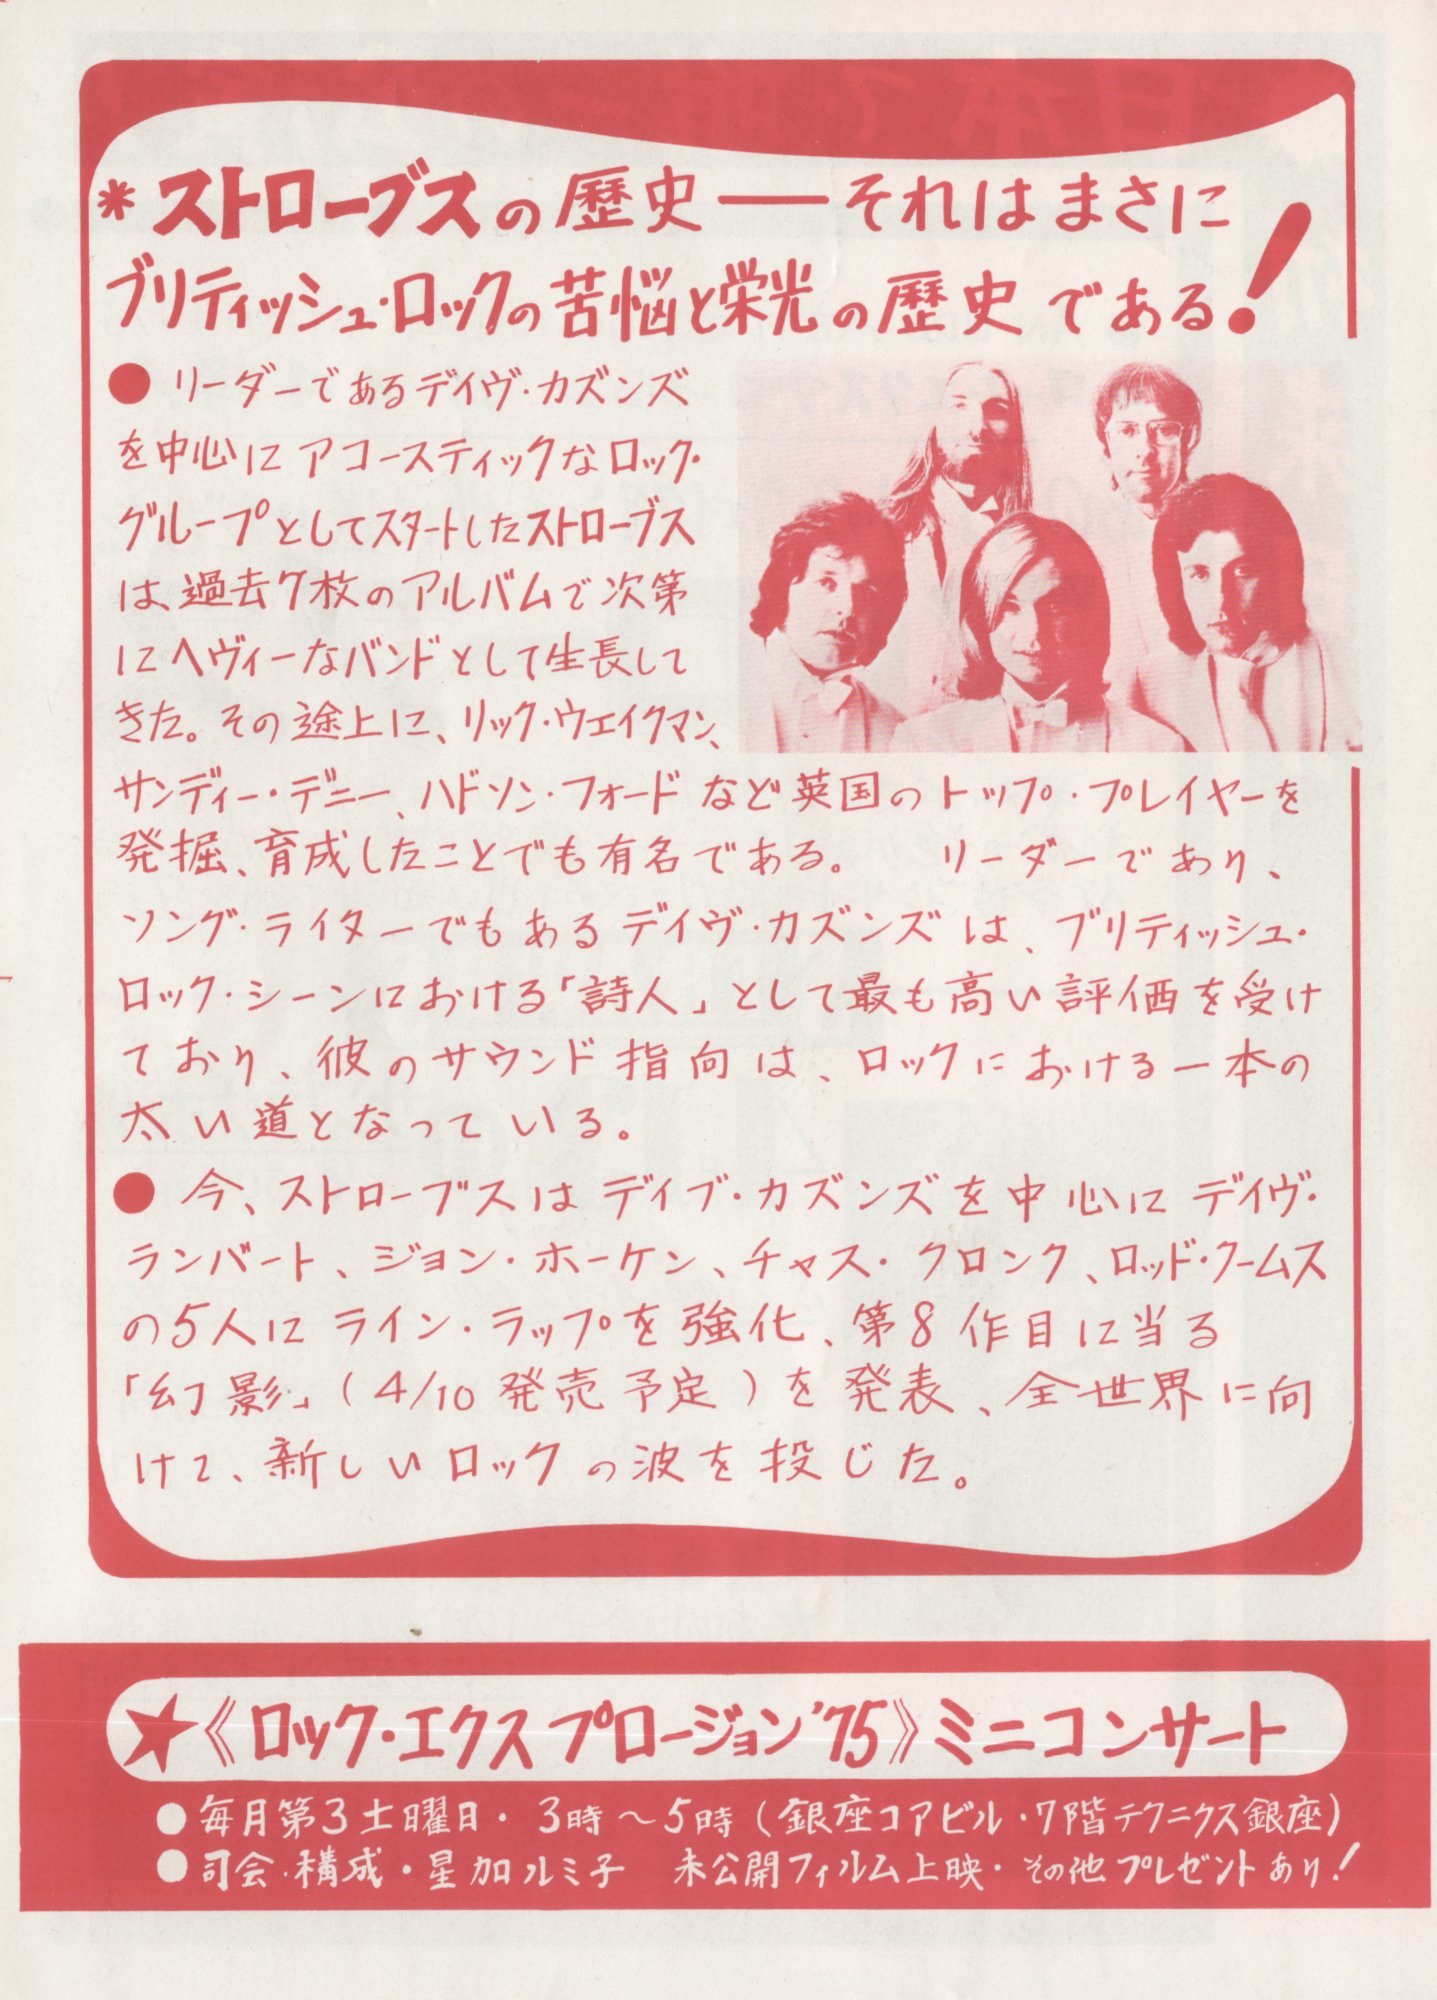 *ストローブスの歴史——それはまさに
ブリティッシュ・ロックの苦悩と栄光の歴史である!
●リーダーであるデイヴ・カズンズ
を中心にアコースティックなロック・
グループとしてスタートしたストローブス
は、過去7枚のアルバムで次第
にヘヴィーなバンドとして生長して
きた。その途上に、リック・ウェイクマン、
サンディー・デニー、ハドソン・フォードなど英国のトップ・プレイヤーを
発掘、育成したことでも有名である。 リーダーであり、
ソング・ライターでもあるデイヴ・カズンズは、ブリティッシュ・
ロック・シーンにおける「詩人」として最も高い評価を受け
ており、彼のサウンド指向は、ロックにおける一本の
太い道となっている。
●今、ストローブスはデイブ・カズンズを中心にデイヴ・
ランバート、ジョン・ホーケン、チャス・クロンク、ロッド・クームス
の5人にライン・ラップを強化、第8作目に当る
「幻影」(4/10発売予定)を発表、全世界に向
けて、新しいロックの波を投じた。
★《ロック・エクスプロージョン'75》ミニコンサート
●毎月第3土曜日・3時〜5時(銀座コアビル・7階テクニクス銀座)
●司会・構成・星加ルミ子 未公開フィルム上映・その他プレゼントあり!